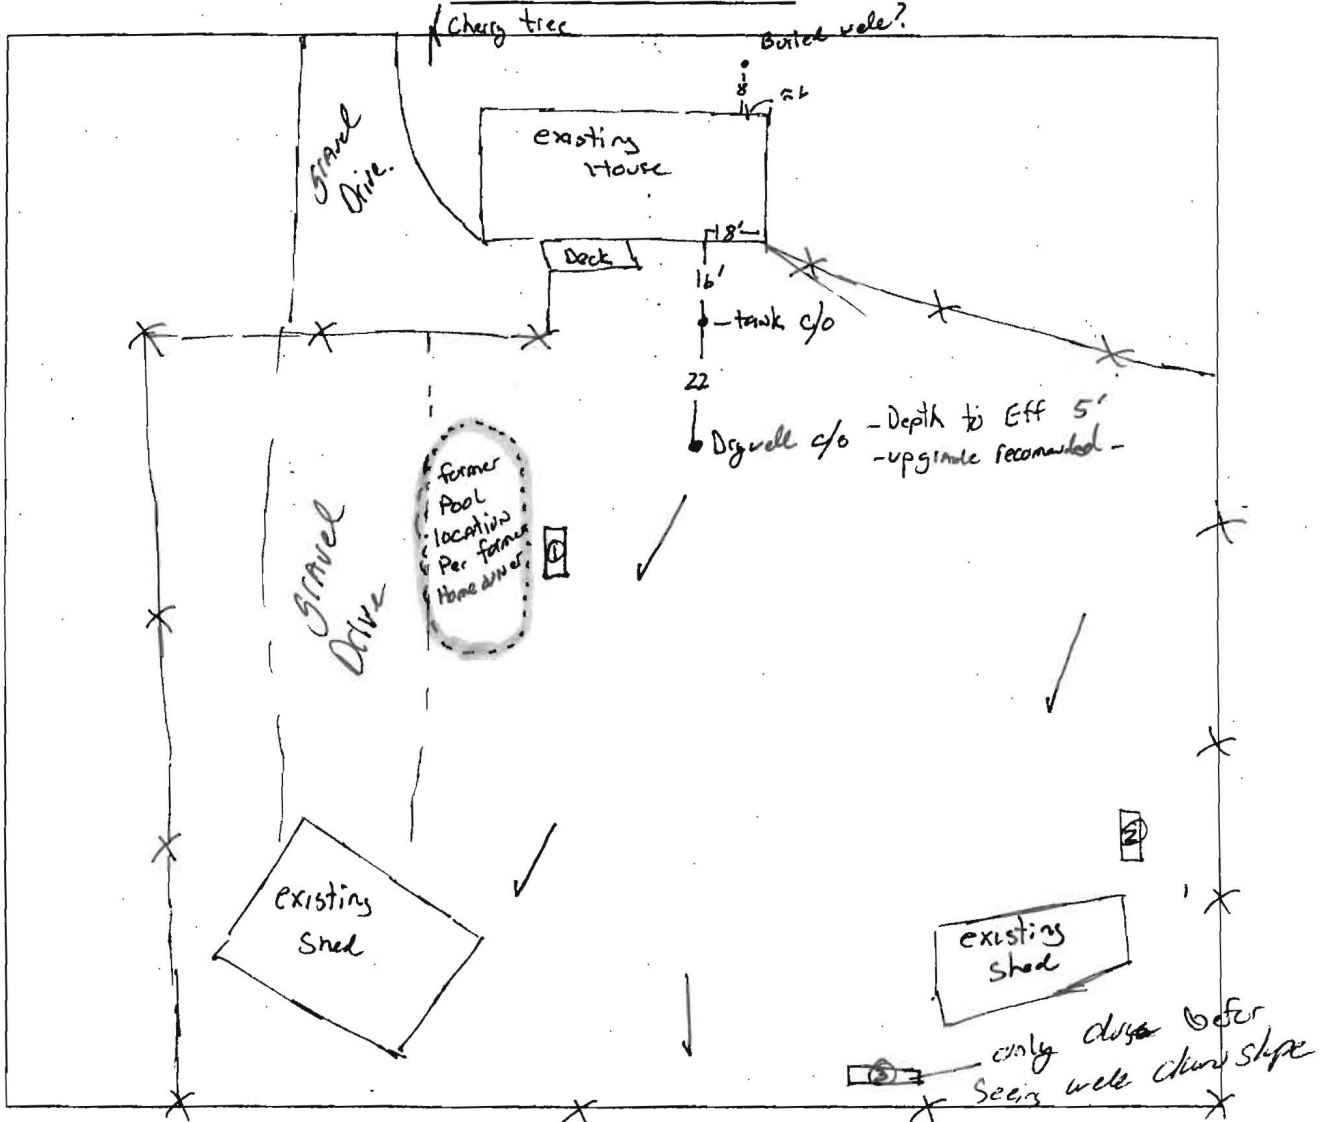 Cherry tree
Buried well?
8
existing
House
Gravel
Drive.
18'
Deck
16'
-tank c/o
22
Drywell c/o
-Depth to Eff 5'
-upgrade recomended-
former
Pool
location
Per former
Homeowner
1
Gravel
Drive
2
existing
Shed
existing
Shed
3
only
Seeing well down slope